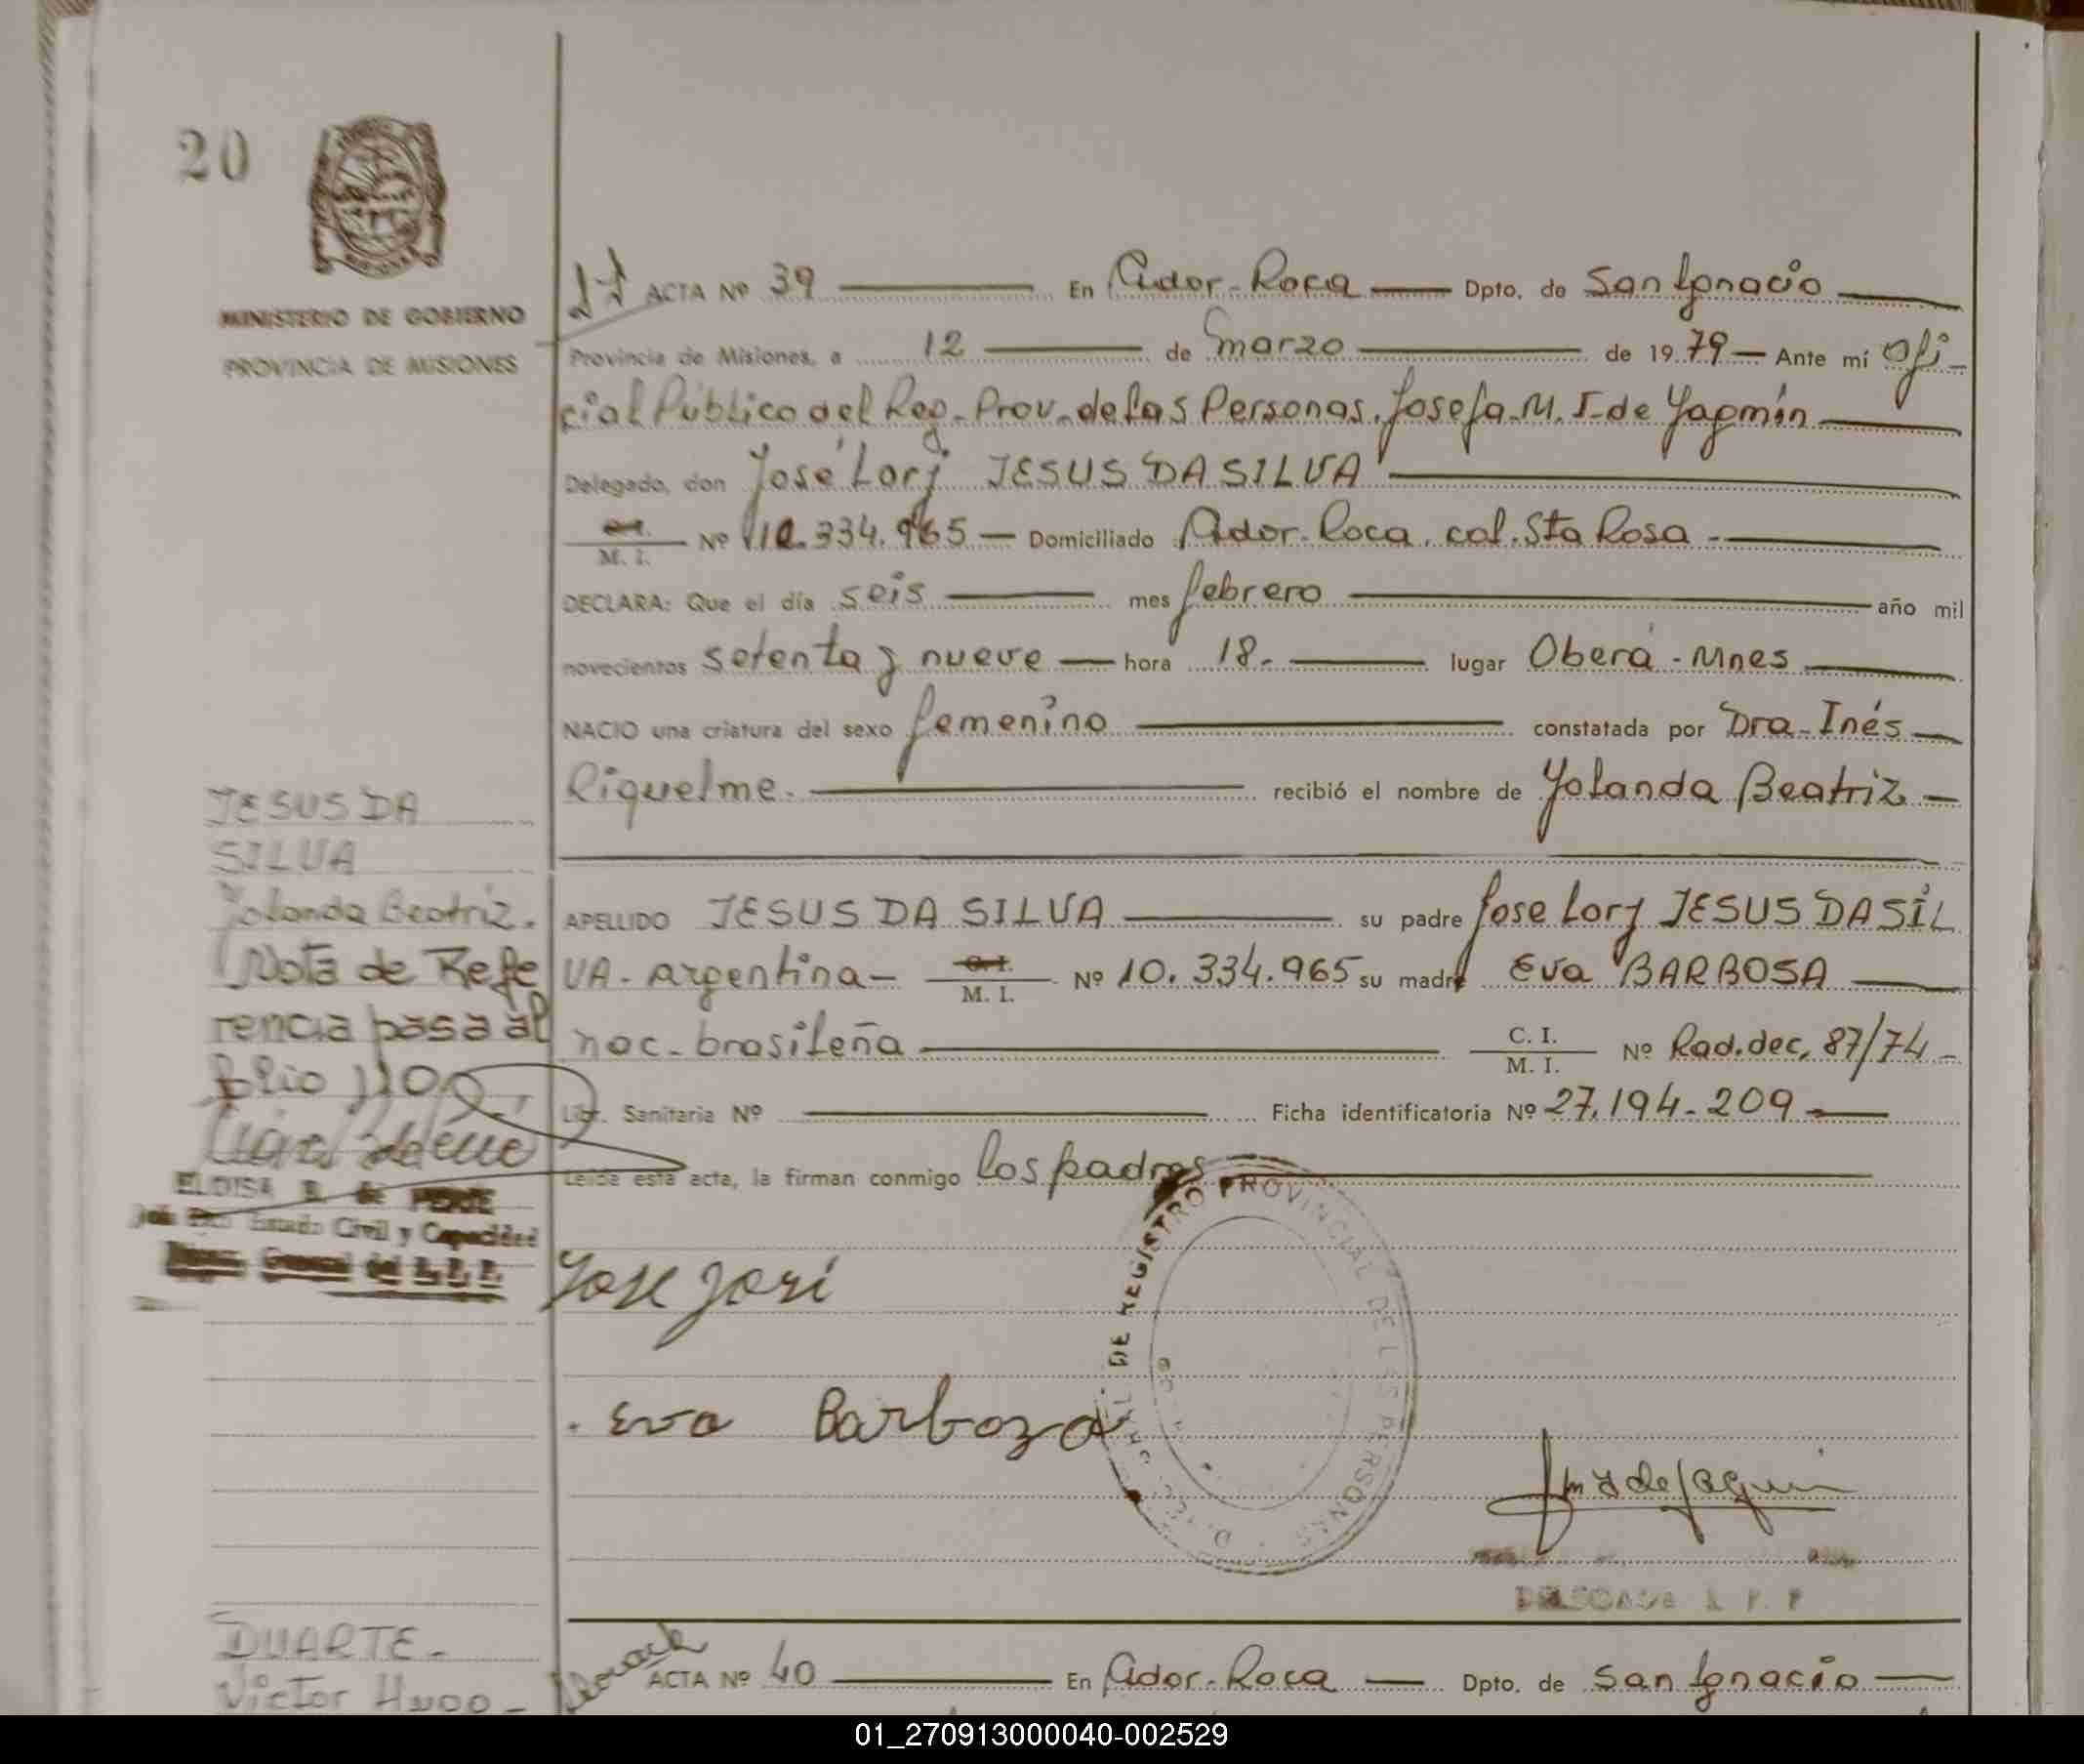 20
MINISTERIO DE GOBIERNO
PROVINCIA DE MISIONES
ACTA Nº 39 En Ador. Roca Dpto. de San Ignacio
Provincia de Misiones, a 12 de marzo de 1979 Ante mí Ofi-
cial Público del Reg. Prov. de las Personas, Josefa M. I. de Yagmín
Delegado, don José Lory JESUS DA SILVA
M. I. Nº 10.334.965 Domiciliado Ador. Roca. col. Sta Rosa
DECLARA: Que el día seis mes febrero año mil
novecientos setenta y nueve hora 18. lugar Oberá - Mnes
NACIO una criatura del sexo femenino constatada por Dra. Inés
Riquelme. recibió el nombre de Yolanda Beatriz
APELLIDO JESUS DA SILVA su padre Jose Lory JESUS DA SIL
VA. argentina C. I. M. I. Nº 10.334.965 su madre Eva BARBOSA
nac. brasileña C. I. M. I. Nº Rad. dec. 87/74
Libr. Sanitaria Nº Ficha identificatoria Nº 27.194.209
Leída esta acta, la firman conmigo los padres
JESUS DA
SILVA
Yolanda Beatriz.
Nota de Refe
rencia pasa al
folio 110
ELOISA de
Estado Civil y Capacidad
General del
Jose Jori
Eva Barboza
DE REGISTRO PROVINCIAL DE LAS PERSONAS
DELEGADA R. P. P.
DUARTE.
Victor Hugo
ACTA Nº 40 En Ador. Roca Dpto. de San Ignacio
01_270913000040-002529